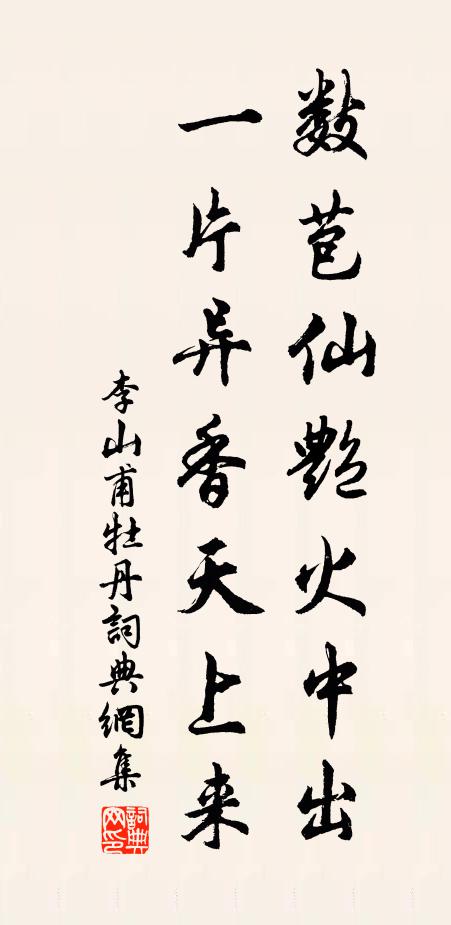 數苞仙艷火中出
一片异香天上来
李山甫牡丹詞典網集
詞典网印